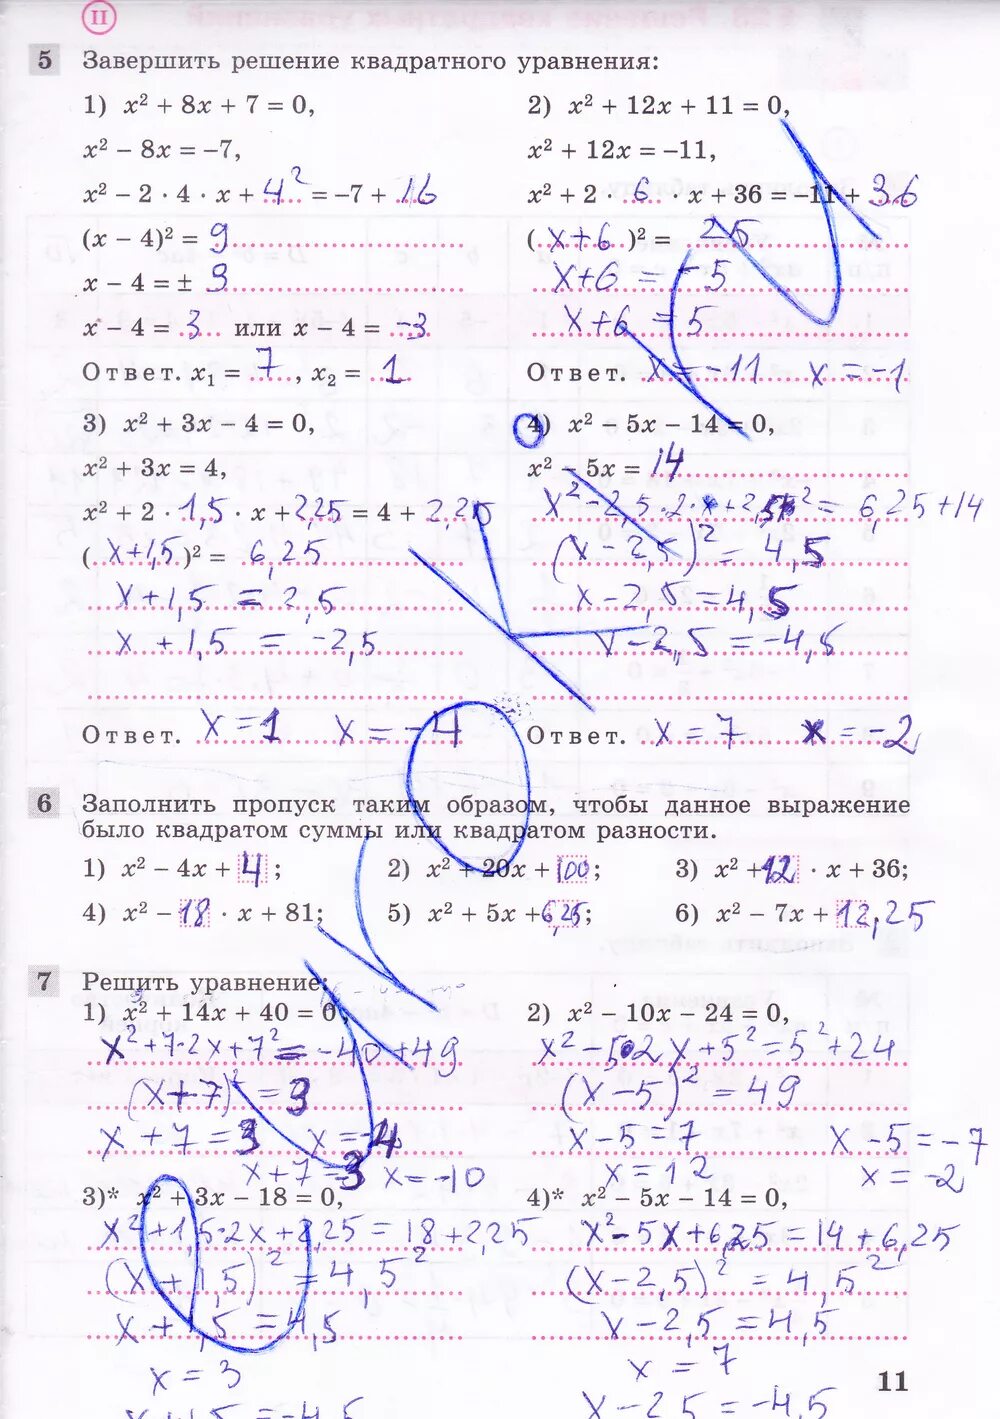 II
5 Завершить решение квадратного уравнения:
1) x² + 8x + 7 = 0,
x² – 8x = –7,
x² – 2 · 4 · x + 4² = –7 + 16
(x – 4)² = 9
x – 4 = ± 3
x – 4 = 3 или x – 4 = –3
Ответ. x₁ = 7, x₂ = 1
2) x² + 12x + 11 = 0,
x² + 12x = –11,
x² + 2 · 6 · x + 36 = –11 + 36
(x+6)² = 25
x+6 = –5
x+6 = 5
Ответ. x = –11 x = –1
3) x² + 3x – 4 = 0,
x² + 3x = 4,
x² + 2 · 1,5 · x + 2,25 = 4 + 2,25
(x+1,5)² = 6,25
x+1,5 = 2,5
x+1,5 = –2,5
Ответ. x = 1 x = –4
4) x² – 5x – 14 = 0,
x² – 5x = 14
x² – 2,5·2·x + 2,5² = 6,25 + 14
(x – 2,5)² = 4,5
x – 2,5 = 4,5
x – 2,5 = –4,5
Ответ. x = 7 x = –2
6 Заполнить пропуск таким образом, чтобы данное выражение
было квадратом суммы или квадратом разности.
1) x² – 4x + 4; 2) x² + 20x + 100; 3) x² + 12 · x + 36;
4) x² – 18 · x + 81; 5) x² + 5x + 6,25; 6) x² – 7x + 12,25
7 Решить уравнение:
1) x² + 14x + 40 = 0,
x² + 7·2x + 7² = –40 + 49
(x+7)² = 3
x + 7 = 3 x = –4
x + 7 = –3 x = –10
2) x² – 10x – 24 = 0,
x² – 5·2x + 5² = 5² + 24
(x – 5)² = 49
x – 5 = 7 x – 5 = –7
x = 12 x = –2
3)* x² + 3x – 18 = 0,
x² + 1,5·2x + 2,25 = 18 + 2,25
(x + 1,5)² = 4,5²
x + 1,5 = 4,5
x = 3
x + 1,5 = –4,5
4)* x² – 5x – 14 = 0,
x² – 5x + 6,25 = 14 + 6,25
(x – 2,5)² = 4,5²
x – 2,5 = 4,5
x = 7
x – 2,5 = –4,5
11